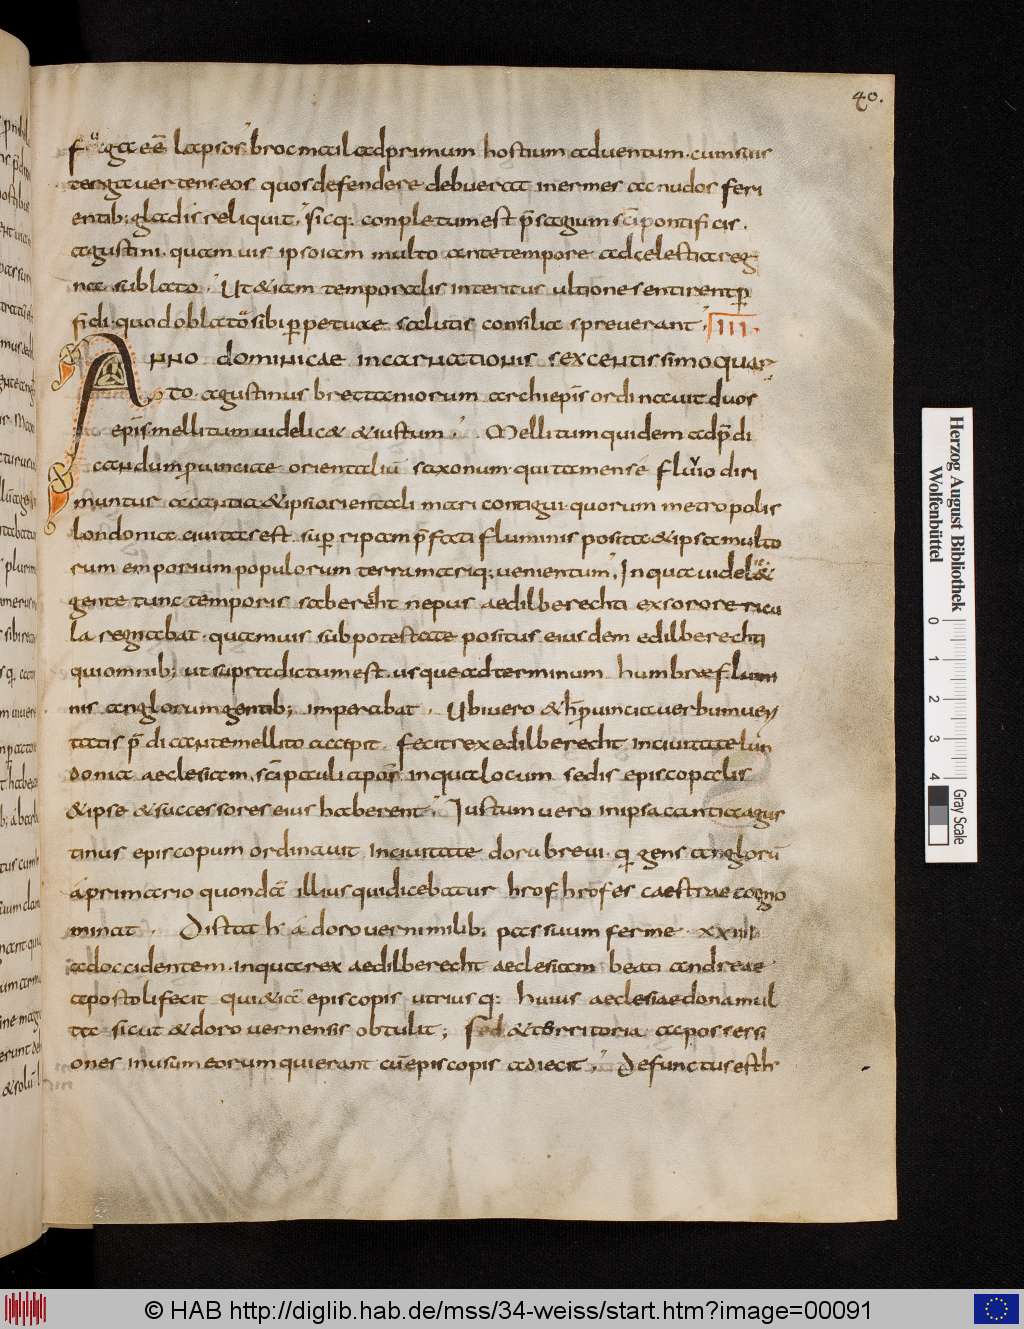 40.
fuga eē lapsos; brocmail ad primum hostium aduentum. cum suis
terga uertens. eos quos defendere debuerat inermes ac nudos feri
entib; gladiis reliquit; sicq; conpletum est p̄sagium sc̄i pontificis.
agustini. quamuis ipso iam multo ante tempore ad caelestia reg
na sublato; Ut &iam temporalis interitus ultione sentirent ꝑ
fidi. quod oblato sibi ꝑpetuae salutis consilia spreuerant; III.
Anno dominicae incarnationis sexcentissimo quar
to. agustinus brettaniorum archiepis̄ ordinauit duos
epis̄ mellitum uidelic& & iustum; Mellitum quidem ad p̄di
candum ꝓuinciae orientaliū saxonum. qui tamense fluuio diri
muntur a cantia & ipsi orientali mari contigui. quorum metropolis
londonia ciuitas est. suꝑ ripam p̄fati fluminis posita & ipsa multo
rum emporium populorum terra mariq; uenientum; In qua uidel&
gente tunc temporis saberēht nepus aedilberechti ex sorore ricu
la regnabat. quamuis sub potestate positus eiusdem edilberechti
qui omnib; ut supra dictum est. usque ad terminum humbrae flumi
nis anglorum gentib; imperabat. Ubi uero & h ꝓuincia uerbum ueri
tatis p̄dicante mellito accepit. fecit rex edilberecht in ciuitate lun
donia aeclesiam sc̄i pauli apos̄. in qua locum sedis episcopalis
& ipse & successores eius haberent; Iustum uero in ipsa cantia agus
tinus episcopum ordinauit in ciuitate dorubreui. q̄ gens anglorū
a primario quondā illius qui dicebatur hrof hrofes caestrae cogno
minat. Distat h a doro uerni milib; passuum ferme xxiiii
ad occidentem. in qua rex aedilberecht aeclesiam beati andreae
apostoli fecit qui & iā episcopis utriusq; huius aeclesiae dona mul
ta sicut & doro uernensis obtulit; sed & territoria ac possessi
ones in usum eorum qui erant cū episcopis adiecit; Defunctus est h
Herzog August Bibliothek
Wolfenbüttel
0 1 2 3 4
Gray Scale
© HAB http://diglib.hab.de/mss/34-weiss/start.htm?image=00091